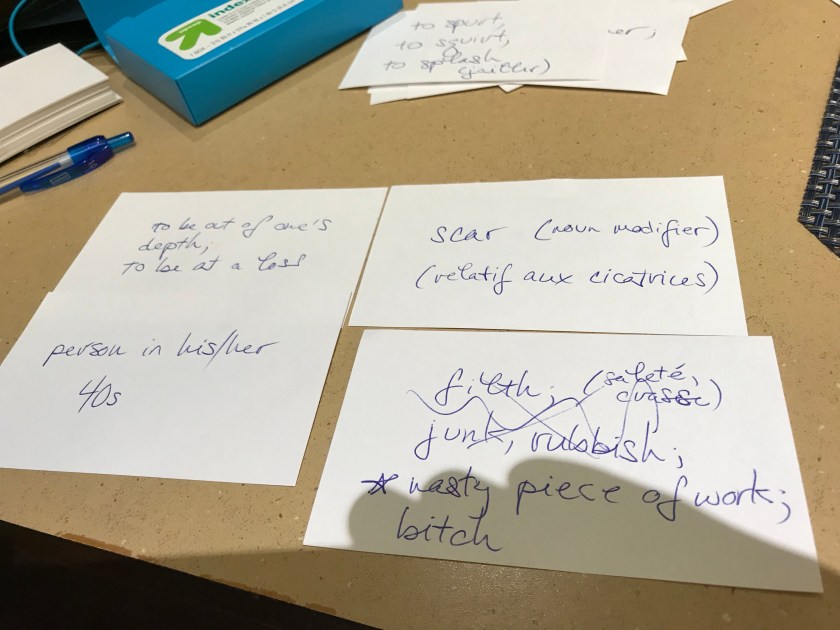 index
to spurt,
to squirt,
to splash
(jaillir)
er;
to be out of one's
depth;
to be at a loss
scar (noun modifier)
(relatif aux cicatrices)
person in his/her
40s
filth; (saleté,
crasse)
junk, rubbish;
* nasty piece of work;
bitch